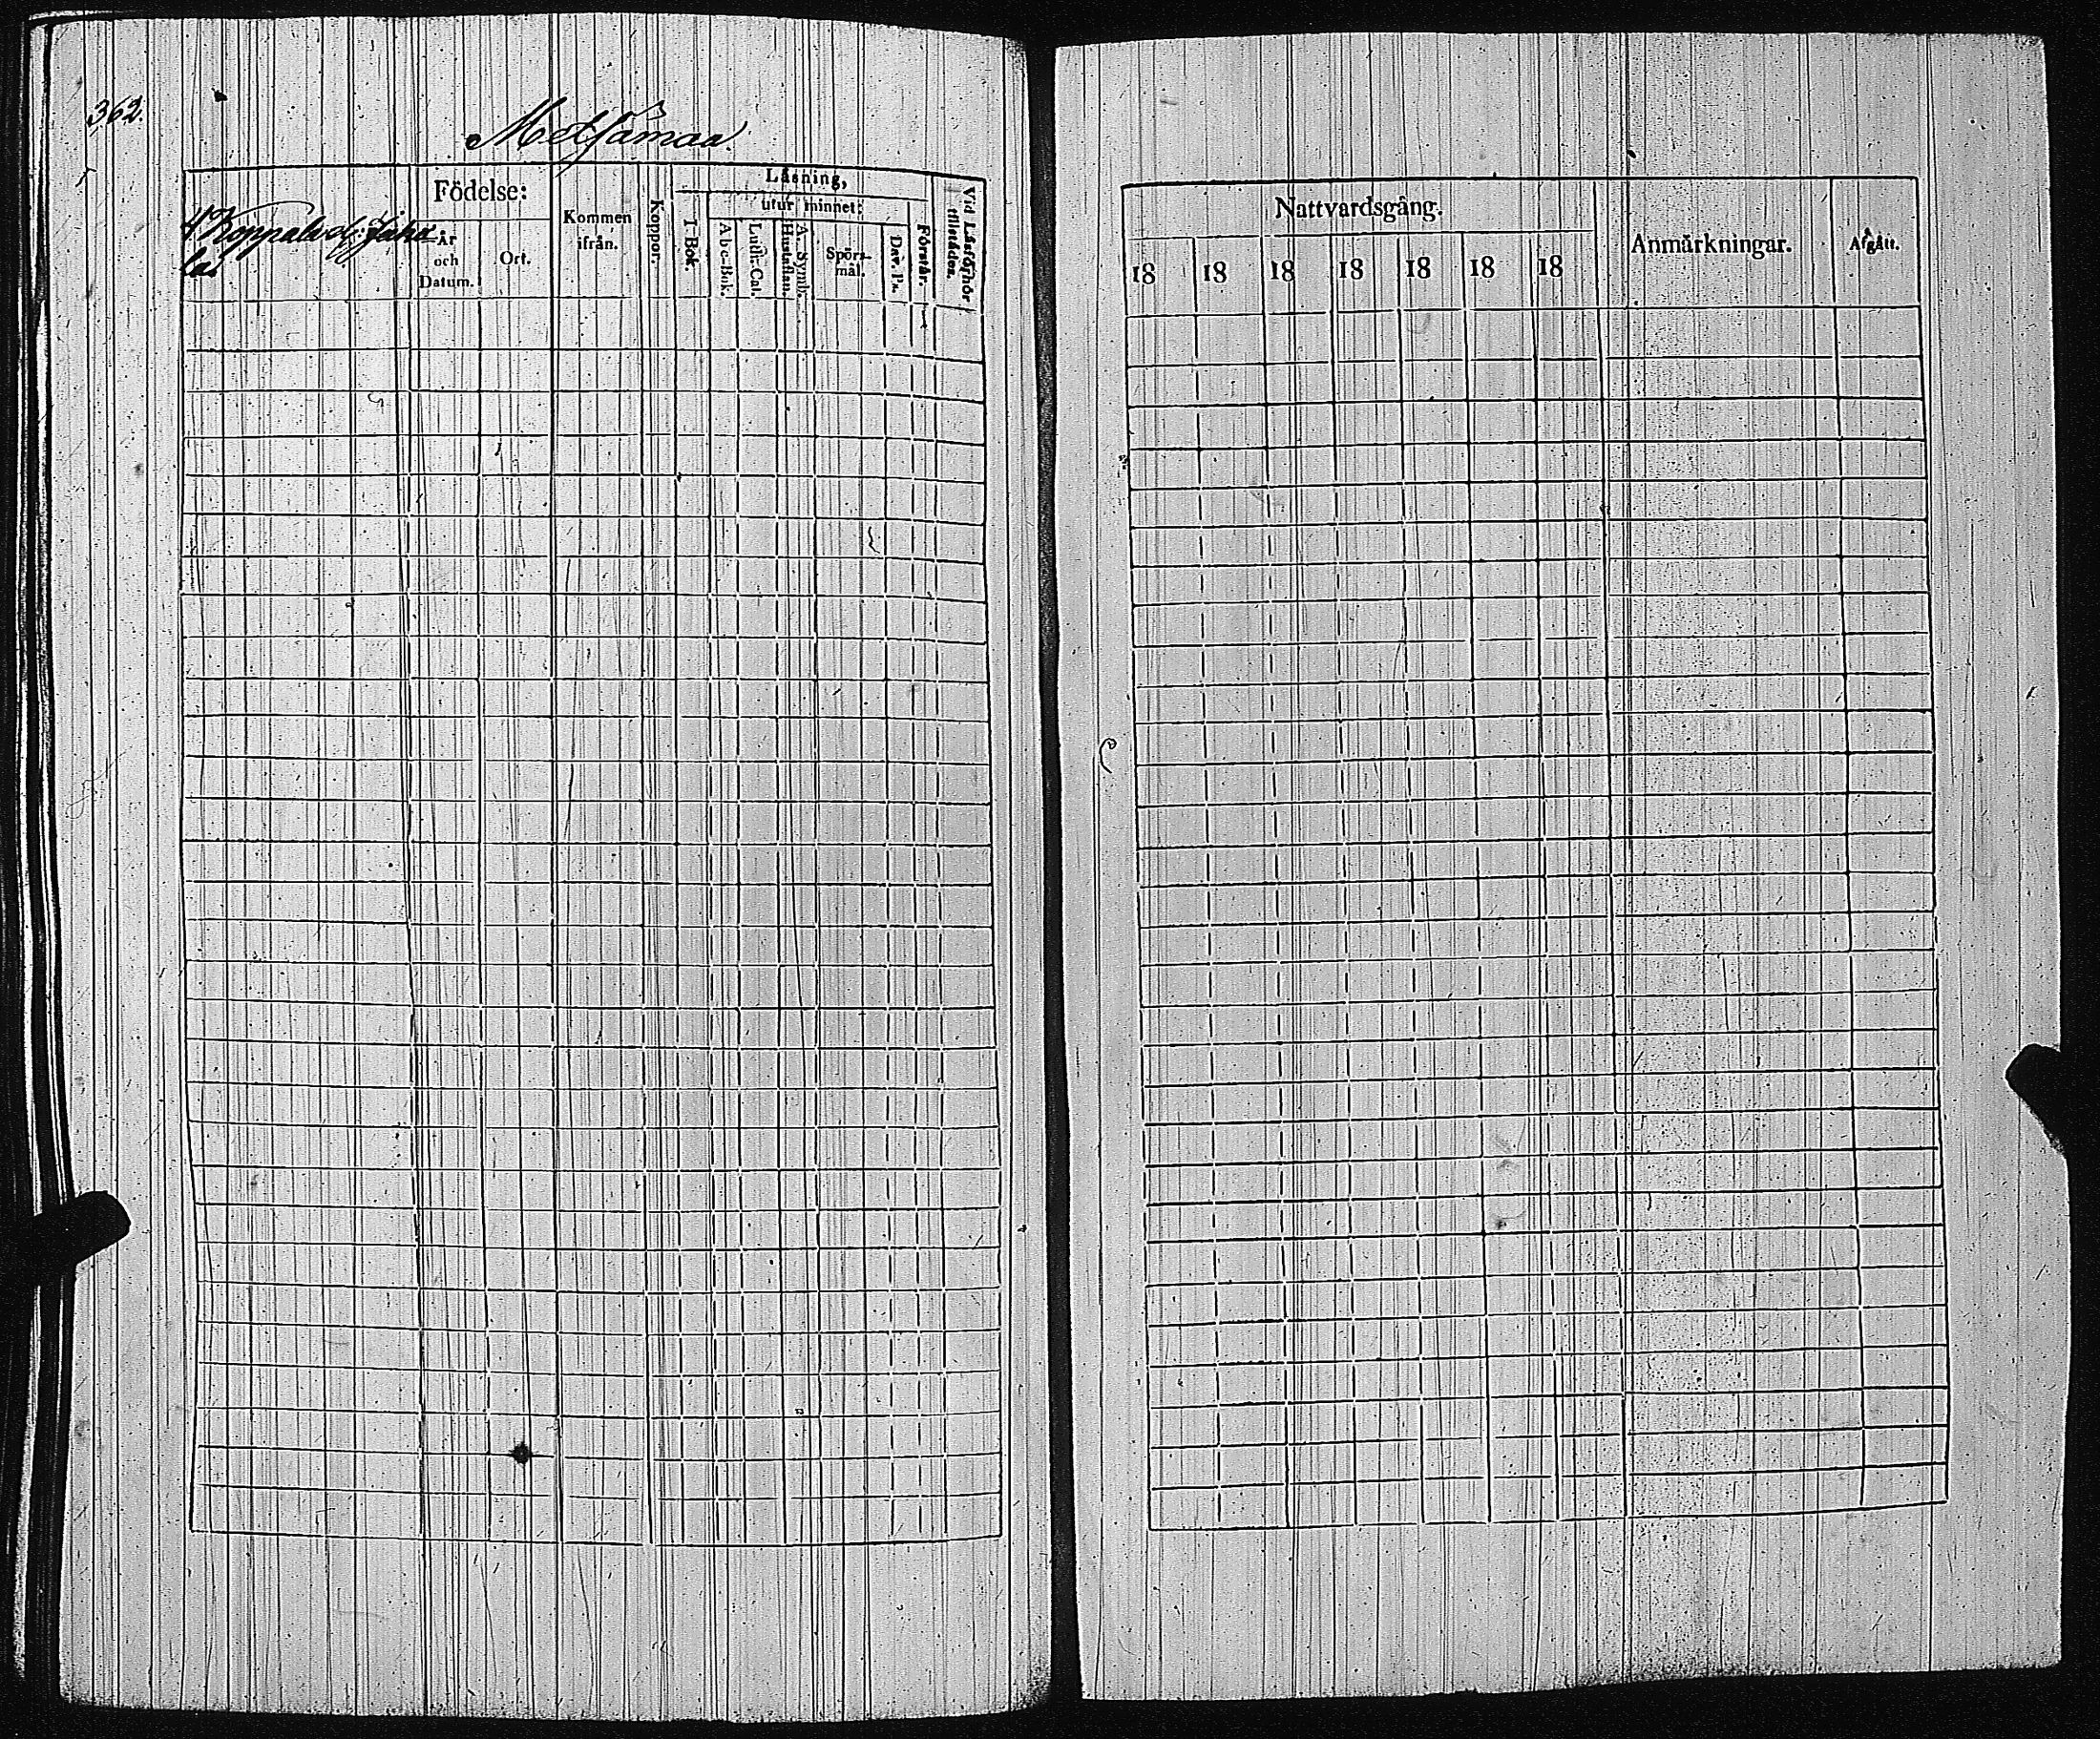 362.
Metsämaa
Födelse:
Kommen ifrån.
Koppor.
Läsning,
utur minnet:
I Bok.
Förstår.
Vid Läsförhör tillstädes.
År och Datum.
Ort.
Abc-Bok.
Luth: Cat.
A. Symb. Hustaflan.
Spörsmål.
Dav. Ps.
4 Koppala
la
Nattvardsgång.
Anmärkningar.
Afgått.
18 18 18 18 18 18 18